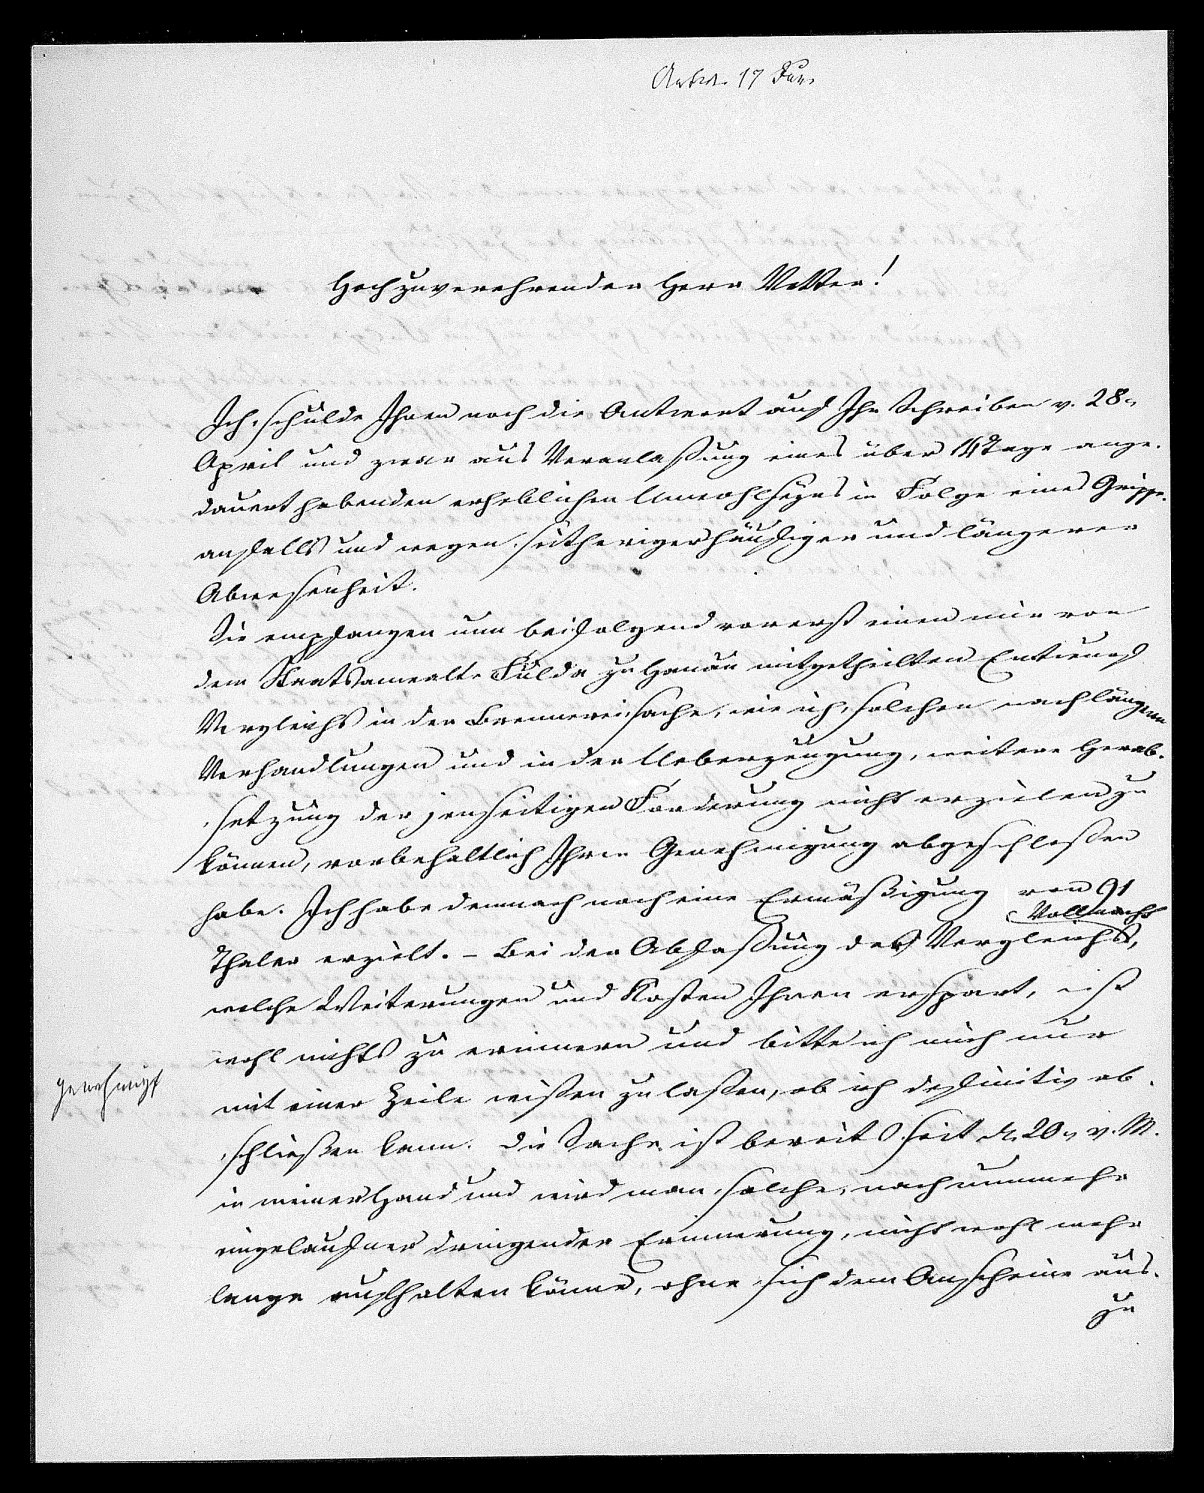 Antw. 17 Jun.
Hochzuverehrender Herr Vetter!
Ich schulde Ihnen noch die Antwort auf Ihr Schreiben v. 28n
April und zwar aus Veranlaßung eines über 14 Tage ange-
dauert habenden erheblichen Unwohlseyns in Folge eines Grippe-
anfalls und wegen seitheriger häufiger und längerer
Abwesenheit.
Sie empfangen nun beifolgend vorerst einen mir von
dem Staatsanwalt Fulda zu Hanau mitgetheilten Entwurf
Vergleichs in der Brennereisache, wie ich solchen nach längeren
Verhandlungen und in der Ueberzeugung, weitere Herab-
setzung der jenseitigen Forderung nicht erzielen zu
können, vorbehaltlich Ihrer Genehmigung abgeschloßen
habe. Ich habe demnach noch eine Ermäßigung von 91
Thaler erzielt. – Bei der Abfaßung des Vergleichs,
Vollmacht
welche Weiterungen und Kosten Ihnen erspart, ist
wohl nichts zu erinnern und bitte ich mich nur
mit einer Zeile wißen zu laßen, ob ich definitiv ab-
genehmigt
schließen kann. Die Sache ist bereits seit d. 20n v. M.
in meiner Hand und wird man solche, nach nunmehr
eingelaufner dringender Erinnerung, nicht wohl mehr
lange aufhalten können, ohne sich dem Anscheine aus-
zu